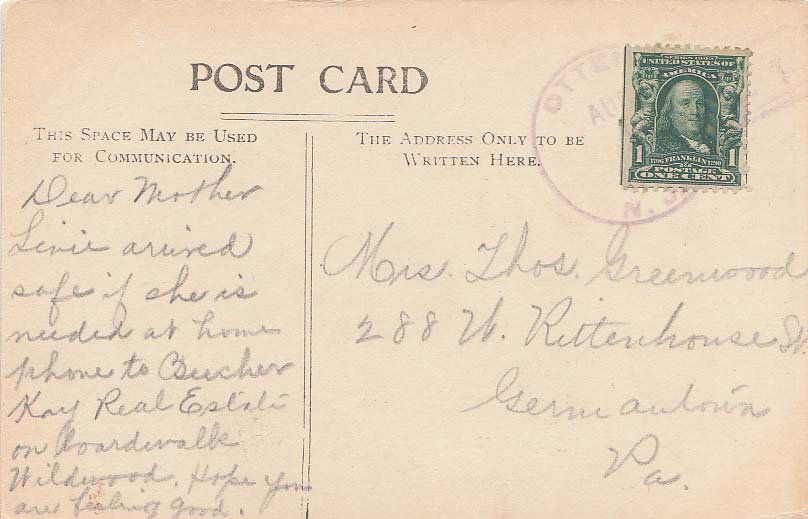 POST CARD
THIS SPACE MAY BE USED
FOR COMMUNICATION.
THE ADDRESS ONLY TO BE
WRITTEN HERE.
SERIES 1902
UNITED STATES OF
AMERICA
1 1706 FRANKLIN 1790 1
POSTAGE
ONE CENT
OTTE
AU
N. J.
Dear Mother
Livie arrived
safe if she is
needed at home
phone to Beecher
Kay Real Estate
on Boardwalk
Wildwood. Hope you
are feeling good.
Mrs. Thos. Greenwood
288 W. Rittenhouse St.
Germantown
Pa.